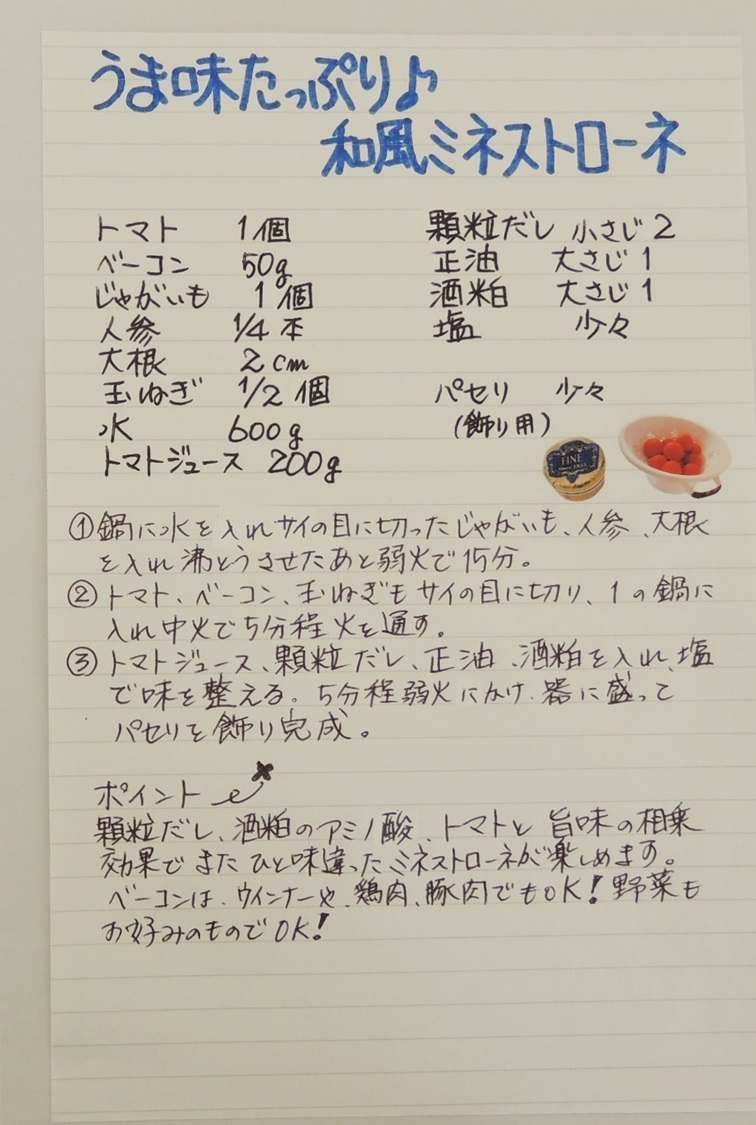 うま味たっぷり♪
和風ミネストローネ
トマト 1個
ベーコン 50g
じゃがいも 1個
人参 1/4本
大根 2cm
玉ねぎ 1/2個
水 600g
トマトジュース 200g
顆粒だし 小さじ2
正油 大さじ1
酒粕 大さじ1
塩 少々
パセリ 少々
(飾り用)
FINE
①鍋に水を入れサイの目に切ったじゃがいも、人参、大根
を入れ沸とうさせたあと弱火で15分。
②トマト、ベーコン、玉ねぎもサイの目に切り、1の鍋に
入れ中火で5分程火を通す。
③トマトジュース、顆粒だし、正油、酒粕を入れ、塩
で味を整える。5分程弱火にかけ、器に盛って
パセリを飾り完成。
ポイント
顆粒だし、酒粕のアミノ酸、トマトと旨味の相乗
効果でまたひと味違ったミネストローネが楽しめます。
ベーコンは、ウインナーや、鶏肉、豚肉でもOK!野菜も
お好みのものでOK!